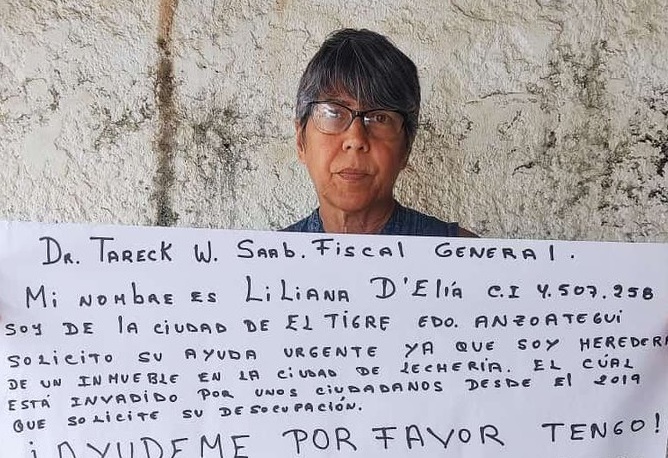 Dr. Tareck W. Saab. Fiscal General.
Mi nombre es Liliana D'Elía C.I 4.507.258
Soy de la ciudad de El Tigre Edo. Anzoategui
solicito su ayuda urgente ya que soy heredera
de un inmueble en la ciudad de Lechería. El cúal
está invadido por unos ciudadanos desde el 2019
que solicite su desocupación.
¡AYUDEME POR FAVOR TENGO!